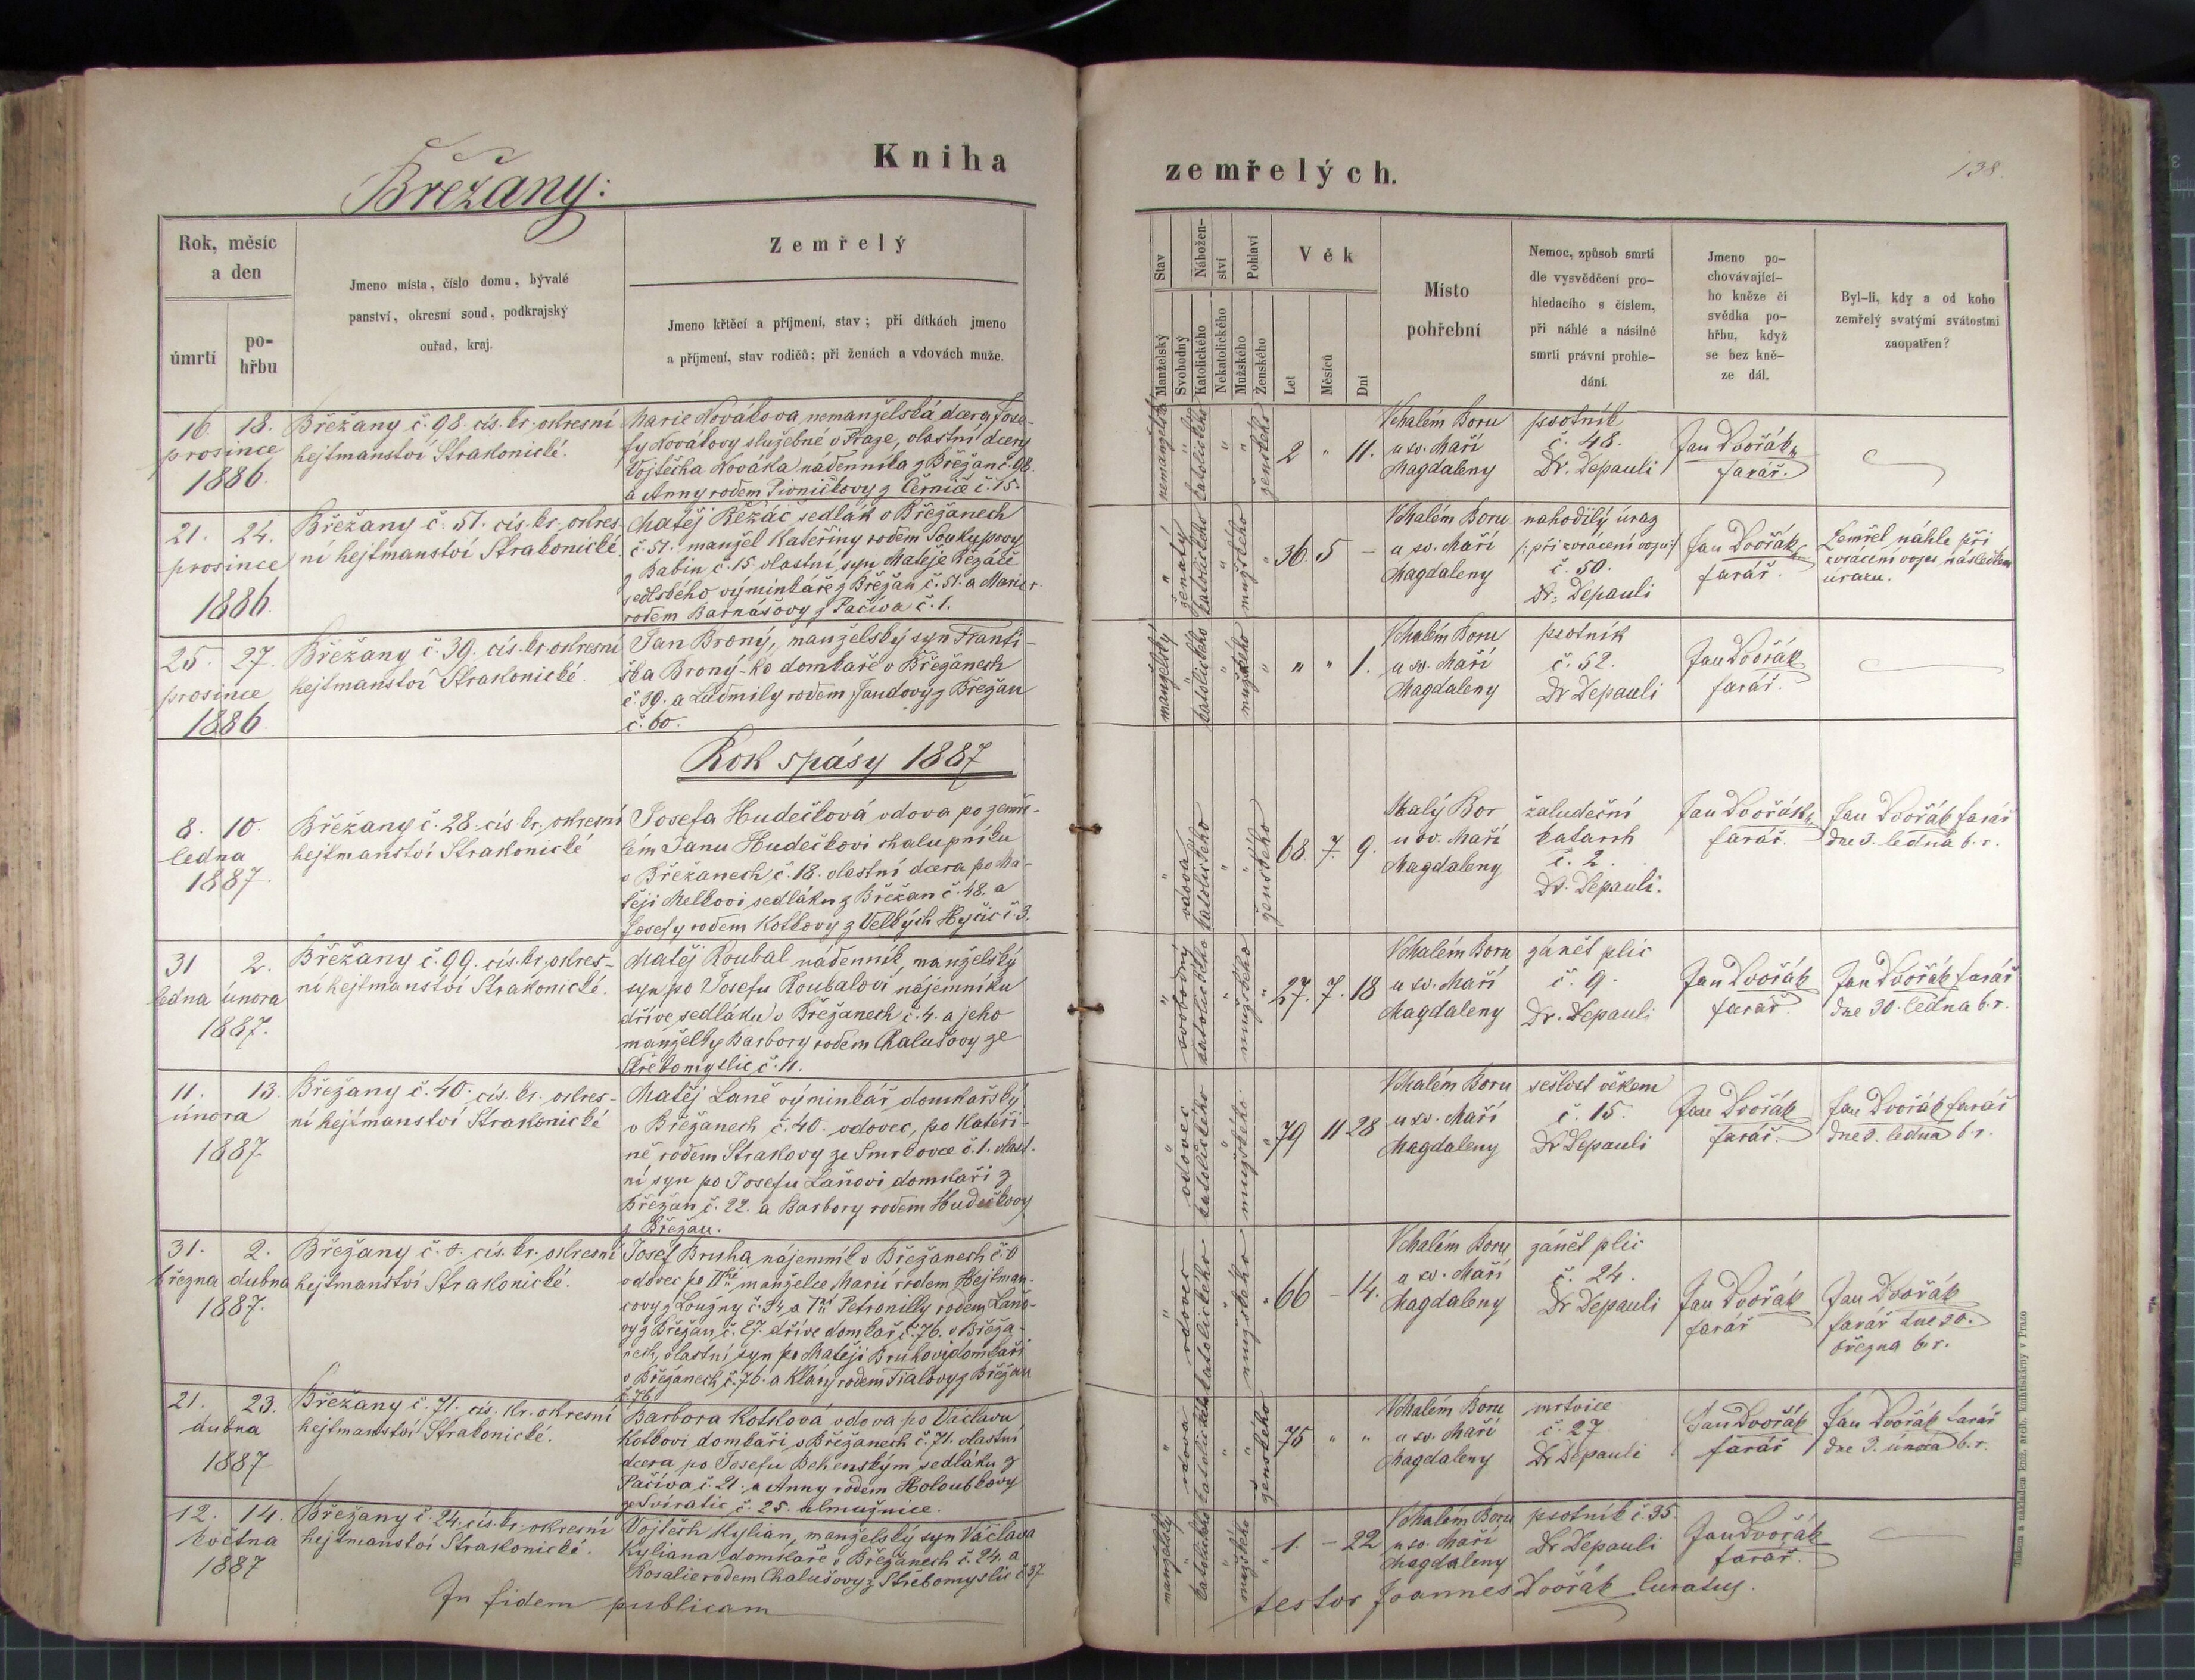 Kniha
Břežany:
Rok, měsíc
a den
úmrtí
po-
hřbu
Jmeno místa, číslo domu, bývalé
panství, okresní soud, podkrajský
ouřad, kraj.
Zemřelý
Jmeno křtěcí a příjmení, stav; při dítkách jmeno
a příjmení, stav rodičů; při ženách a vdovách muže.
16. 18.
prosince
1886.
Břežany č. 98. cís. kr. okresní
hejtmanství Strakonické.
Marie Nováková, nemanželská dcera Jose-
fy Novákovy služebné v Praze, vlastní dcery
Vojtěcha Nováka nádenníka z Břežan č. 98.
a Anny rodem Pivničkovy z Černíč č. 15.
21. 24.
prosince
1886.
Břežany č. 51. cís. kr. okres-
ní hejtmanství Strakonické.
Matěj Řezáč sedlák v Břežanech
č. 51. manžel Kateřiny rodem Soukupovy
z Babín č. 15. vlastní syn Matěje Řezáče
sedlského výminkáře z Břežan č. 51. a Marie
rodem Barnášovy z Pačiva č. 1.
25. 27.
prosince
1886.
Břežany č. 39. cís. kr. okresní
hejtmanství Strakonické.
Jan Broný, manželský syn Franti-
ška Broný-ho domkáře v Břežanech
č. 39. a Ludmily rodem Jandovy z Břežan
č. 60.
Rok spásy 1887
8. 10.
ledna
1887.
Břežany č. 28. cís. kr. okresní
hejtmanství Strakonické
Josefa Hudečková vdova po zemře-
lém Janu Hudečkovi chalupníku
v Břežanech č. 18. vlastní dcera po Ma-
těji Melkovi sedláku z Břežan č. 48. a
Josefy rodem Kotkovy z Velkých Hyčic č. 3.
31 2.
ledna února
1887.
Břežany č. 99. cís. kr. okres-
ní hejtmanství Strakonické.
Matěj Roubal nádenník, manželský
syn po Josefu Roubalovi nájemníku
dříve sedláku v Břežanech č. 4. a jeho
manželky Barbory rodem Chalušovy ze
Střebomyslic č. 11.
11. 13.
února
1887.
Břežany č. 40. cís. kr. okres-
ní hejtmanství Strakonické
Matěj Laně výminkář domkářský
v Břežanech č. 40. vdovec, po Kateři-
ně rodem Strakovy ze Smrkovce č. 1. vlast-
ní syn po Josefu Laňovi domkáři z
Břežan č. 22. a Barbory rodem Hudečkovy
z Břežan.
31. 2.
března dubna
1887.
Břežany č. cís. kr. okresní
hejtmanství Strakonické.
Josef Bruha, nájemník v Břežanech č.
vdovec po II manželce Marii rodem Hejtman-
covy z Loužny č. a I Petronilly rodem Laňo-
vy z Břežan č. 27. dříve domkář č. 76. v Břeža-
nech, vlastní syn po Matěji Bruhovi domkáři
v Břežanech č. 76. a Kláry rodem Fialovy z Břežan
č. 76.
21. 23.
dubna
1887
Břežany č. 71. cís. kr. okresní
hejtmanství Strakonické.
Barbora Kotková vdova po Václavu
Kotkovi domkáři v Břežanech č. 71. vlastní
dcera po Josefu Behenským sedláku z
Pačiva č. 21. a Anny rodem Holoubkovy
ze Svíratic č. 25. almužnice.
12. 14.
května
1887
Břežany č. 24. cís. kr. okresní
hejtmanství Strakonické.
Vojtěch Kylián, manželský syn Václava
Kyliana domkáře v Břežanech č. 24. a
Rosalie rodem Chalušovy z Střebomyslic č 37
In fidem publicam
zemřelých.
138.
Stav
Nábožen-
ství
Pohlaví
Věk
Manželský
Svobodný
Katolického
Nekatolického
Mužského
Ženského
Let
Měsíců
Dní
Místo
pohřební
Nemoc, způsob smrti
dle vysvědčení pro-
hledacího s číslem,
při náhlé a násilné
smrti právní prohle-
dání.
Jmeno po-
chovávající-
ho kněze či
svědka po-
hřbu, když
se bez kně-
ze dál.
Byl-li, kdy a od koho
zemřelý svatými svátostmi
zaopatřen?
nemanželská " katolického " " ženského
2 " 11.
V Malém Boru
u sv. Maří
Magdaleny
psotník
č. 48.
Dr. Depauli
Jan Dvořák
farář.
" ženatý katolického " mužského "
36. 5 –
V Malém Boru
u sv. Maří
Magdaleny
nahodilý úraz
/: při zvrácení vozu :/
č. 50.
Dr. Depauli
Jan Dvořák
farář.
Zemřel náhle při
zvrácení vozu následkem
úrazu.
manželský " katolického " mužského "
" " 1.
V Malém Boru
u sv. Maří
Magdaleny
psotník
č. 52.
Dr Depauli
Jan Dvořák
farář.
" vdova katolického " " ženského
68. 7. 9.
Malý Bor
u sv. Maří
Magdaleny
žaludeční
katarrh
č. 2.
Dr. Depauli.
Jan Dvořák
farář.
Jan Dvořák farář
dne 3. ledna b. r.
" svobodný katolického " mužského "
27. 7. 18
V Malém Boru
u sv. Maří
Magdaleny
zánět plic
č. 9.
Dr. Depauli
Jan Dvořák
farář.
Jan Dvořák farář
dne 30. ledna b. r.
" vdovec katolického " mužského "
79 11 28
V Malém Boru
u sv. Maří
Magdaleny
sešlost věkem
č. 15.
Dr Depauli
Jan Dvořák
farář.
Jan Dvořák farář
dne 3. ledna b. r.
" vdovec katolického " mužského "
66 – 14.
V Malém Boru
u sv. Maří
Magdaleny
zánět plic
č. 24.
Dr Depauli
Jan Dvořák
farář
Jan Dvořák
farář dne 30.
března b. r.
" vdova katolického " " ženského
75 " "
V Malém Boru
u sv. Maří
Magdaleny
mrtvice
č. 27
Dr Depauli
Jan Dvořák
farář
Jan Dvořák farář
dne 3. února b. r.
manželský " katolického " mužského "
1. – 22
V Malém Boru
u sv. Maří
Magdaleny
psotník č. 35.
Dr Depauli
Jan Dvořák
farář.
testor Joannes Dvořák Curatus.
Tiskem a nákladem kníž. arcib. knihtiskárny v Praze